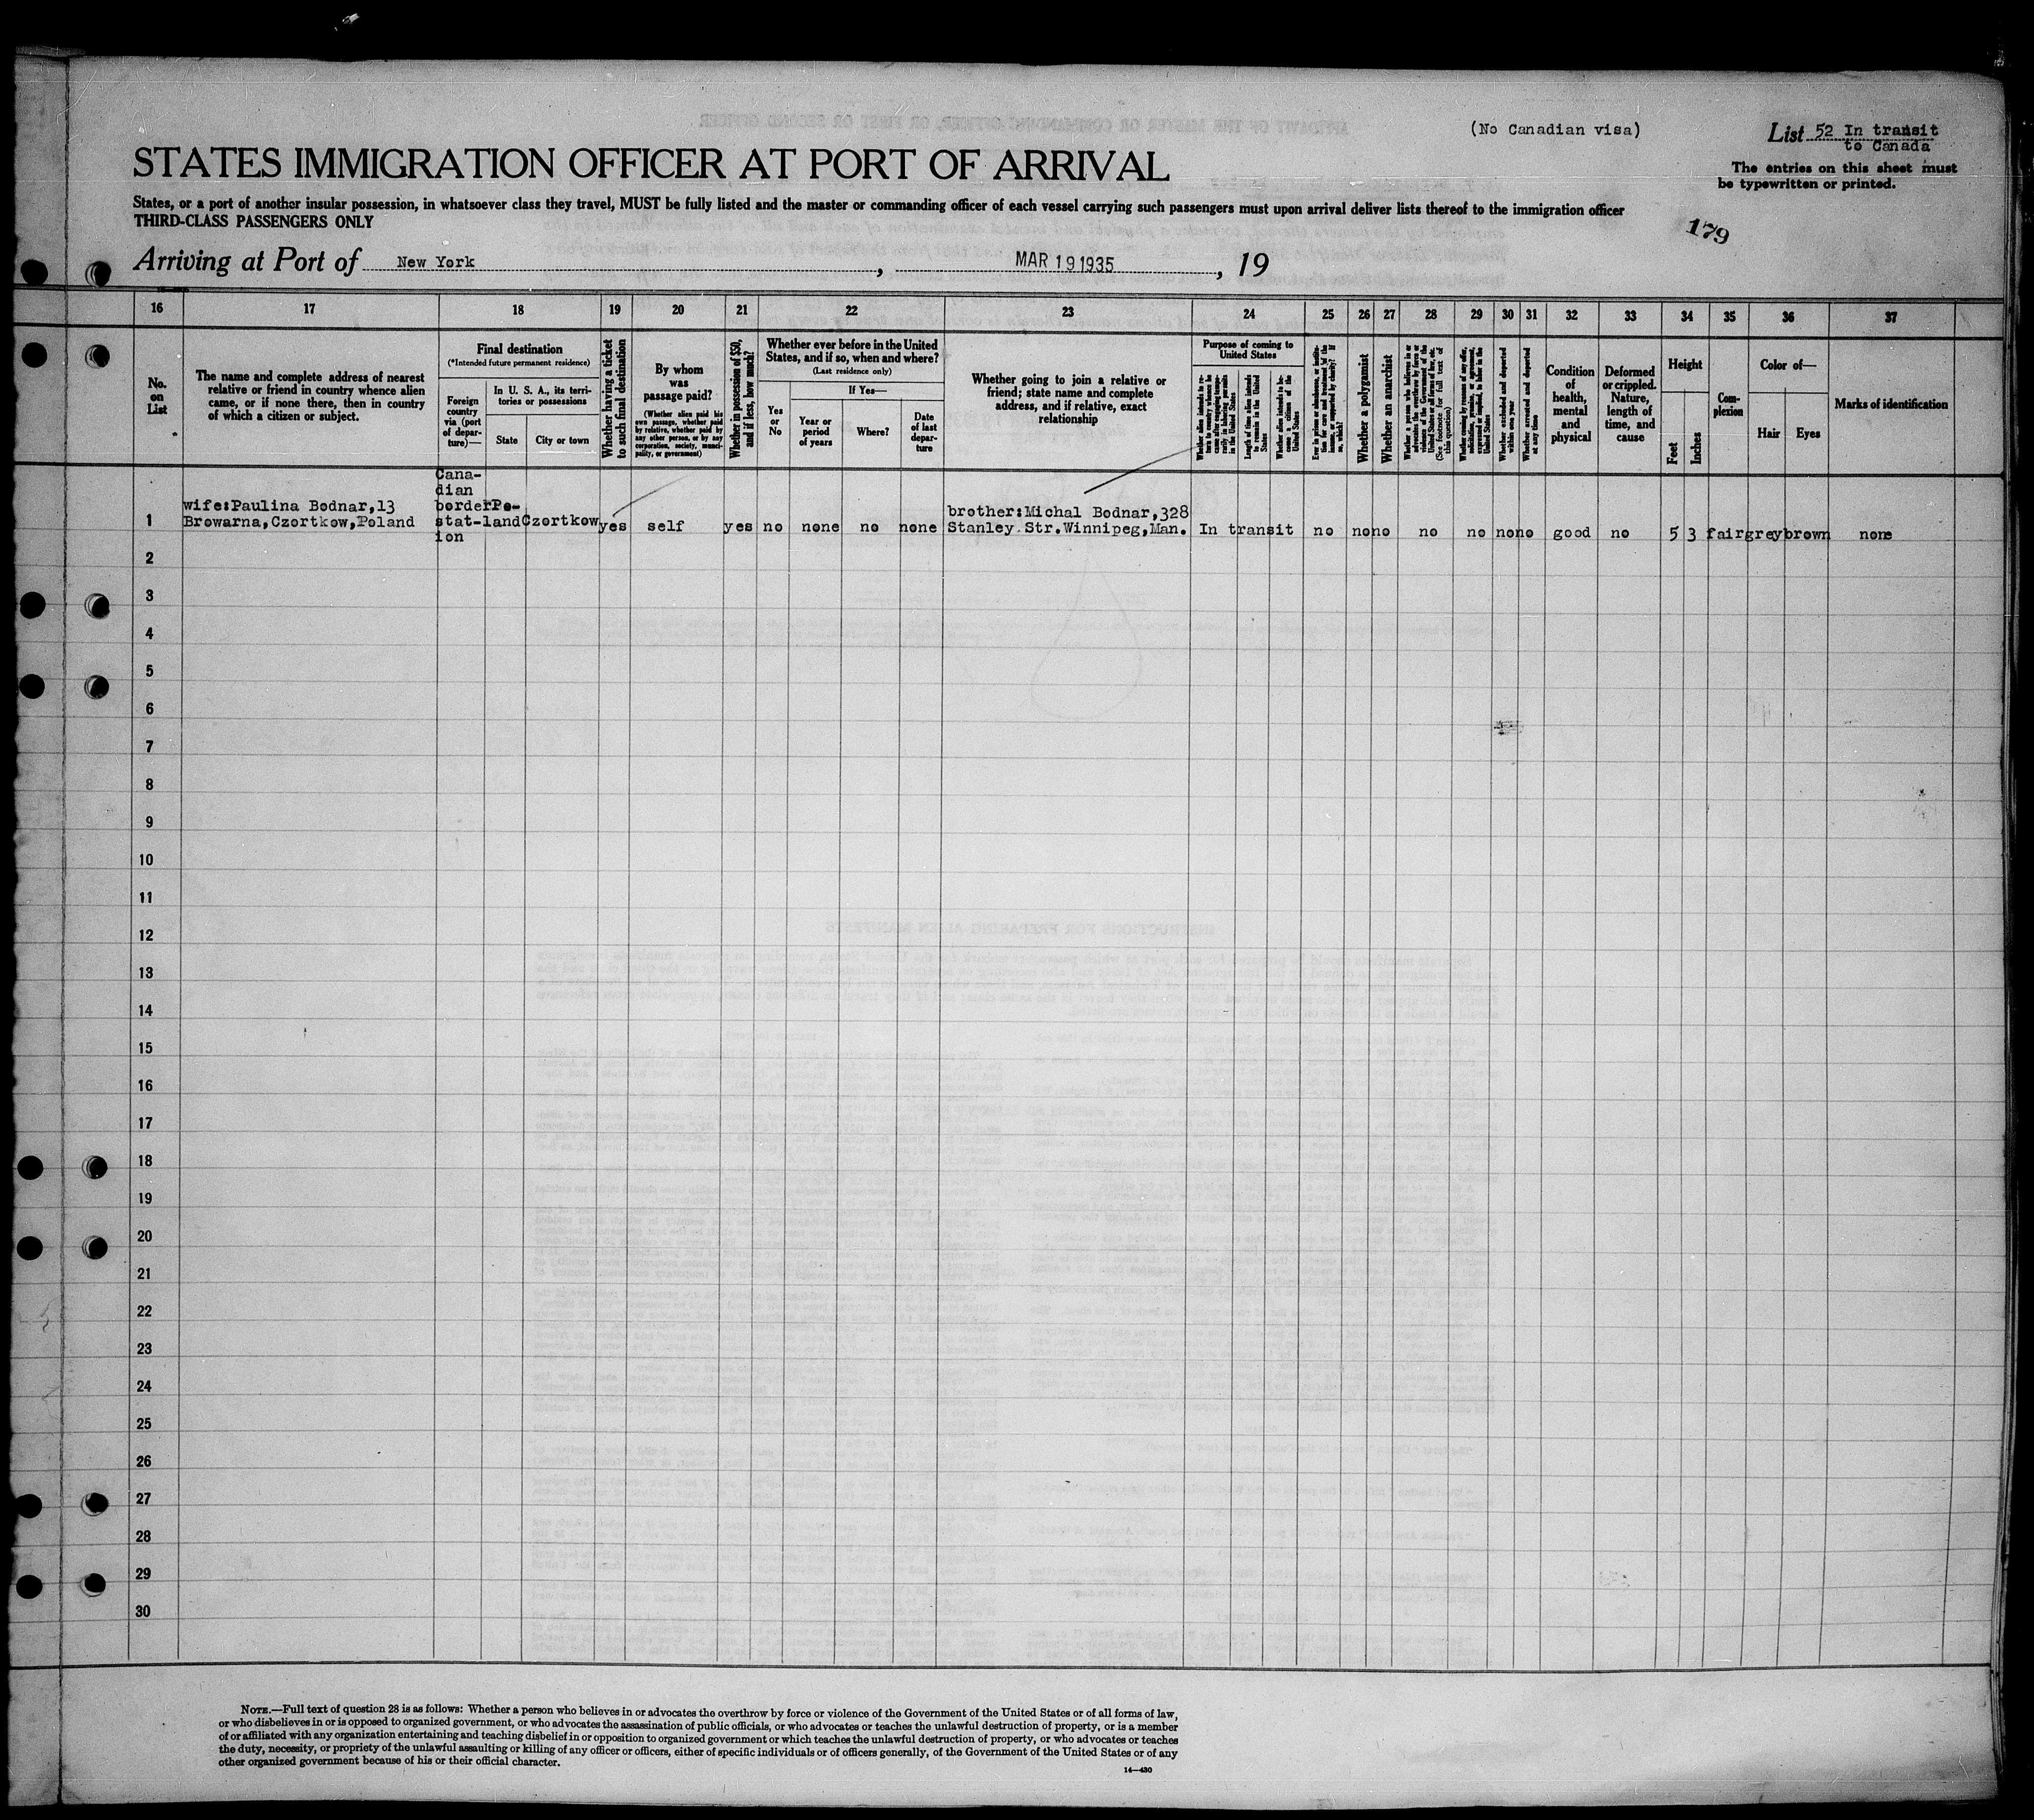 (No Canadian visa)
List 52 In transit
to Canada
STATES IMMIGRATION OFFICER AT PORT OF ARRIVAL
The entries on this sheet must
be typewritten or printed.
States, or a port of another insular possession, in whatsoever class they travel, MUST be fully listed and the master or commanding officer of each vessel carrying such passengers must upon arrival deliver lists thereof to the immigration officer
THIRD-CLASS PASSENGERS ONLY
179
Arriving at Port of New York, MAR 19 1935, 19
16 17 18 19 20 21 22 23 24 25 26 27 28 29 30 31 32 33 34 35 36 37
No.
on
List
The name and complete address of nearest
relative or friend in country whence alien
came, or if none there, then in country
of which a citizen or subject.
Final destination
(*Intended future permanent residence)
Foreign
country
via (port
of depar-
ture)—
In U. S. A., its terri-
tories or possessions
State
City or town
Whether having a ticket
to such final destination
By whom
was
passage paid?
(Whether alien paid his
own passage, whether paid
by relative, whether paid by
any other person, or by any
corporation, society, munici-
pality, or government)
Whether in possession of $50,
and if less, how much?
Whether ever before in the United
States, and if so, when and where?
(Last residence only)
Yes
or
No
If Yes—
Year or
period
of years
Where?
Date
of last
depar-
ture
Whether going to join a relative or
friend; state name and complete
address, and if relative, exact
relationship
Purpose of coming to
United States
Length of time alien intends
to remain in the United
States
Whether alien intends to be-
come a citizen of the
United States
Whether a polygamist
Whether an anarchist
(See footnote for full text of
this question)
Whether excluded and deported
within one year
Whether arrested and deported
at any time
Condition
of
health,
mental
and
physical
Deformed
or crippled.
Nature,
length of
time, and
cause
Height
Feet
Inches
Com-
plexion
Color of—
Hair
Eyes
Marks of identification
1
wife:Paulina Bodnar,13
Browarna,Czortkow,Poland
Cana-
dian
border
stat-
ion
Po-
land
Czortkow
yes
self
yes
no
none
no
none
brother:Michal Bodnar,328
Stanley Str.Winnipeg,Man.
In transit
no
no
no
no
no
no
no
good
no
5
3
fair
grey
brown
none
2
3
4
5
6
7
8
9
10
11
12
13
14
15
16
17
18
19
20
21
22
23
24
25
26
27
28
29
30
NOTE.—Full text of question 28 is as follows: Whether a person who believes in or advocates the overthrow by force or violence of the Government of the United States or of all forms of law,
or who disbelieves in or is opposed to organized government, or who advocates the assassination of public officials, or who advocates or teaches the unlawful destruction of property, or is a member
of or affiliated with any organization entertaining and teaching disbelief in or opposition to organized government or which teaches the unlawful destruction of property, or who advocates or teaches
the duty, necessity, or propriety of the unlawful assaulting or killing of any officer or officers, either of specific individuals or of officers generally, of the Government of the United States or of any
other organized government because of his or their official character.
14—430